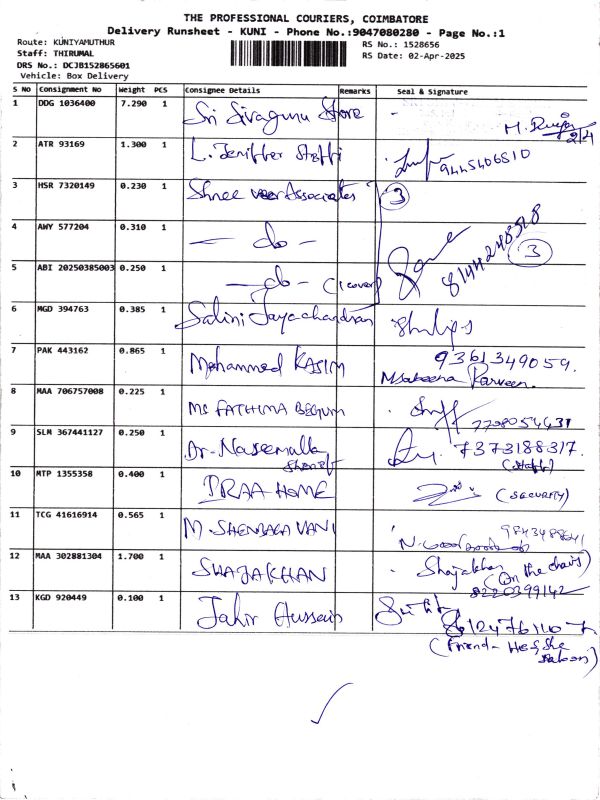 THE PROFESSIONAL COURIERS, COIMBATORE
Delivery Runsheet - KUNI - Phone No.:9047080280 - Page No.:1
Route: KUNIYAMUTHUR
Staff: THIRUMAL
DRS No.: DCJB152865601
Vehicle: Box Delivery
RS No.: 1528656
RS Date: 02-Apr-2025
S No Consignment No Weight PCS Consignee Details Remarks Seal & Signature
1 DDG 1036400 7.290 1 Sri Sivaguru Store
2/4
2 ATR 93169 1.300 1 L. Jeniffer Steffi 9445406510
3 HSR 7320149 0.230 1 Shree Veer Associates 3
4 AWY 577204 0.310 1 — do — 8144248528 3
5 ABI 20250385003 0.250 1 — do — (1 cover)
6 MGD 394763 0.385 1 Salini Jayachandran
7 PAK 443162 0.865 1 Mohammed KASIM 9361349059.
M. Sabeena Parveen.
8 MAA 706757008 0.225 1 MS FATHIMA BEGUM 7708054431
9 SLM 367441127 0.250 1 Dr. Naseemulla 7373188317.
Sheriff (Staff)
10 MTP 1355358 0.400 1 PRAA HOME (SECURITY)
11 TCG 41616914 0.565 1 M. SHENBAGAVANI
12 MAA 302881304 1.700 1 SHAJAKHAN Shajakhan
(On the chair)
8220399142
13 KGD 920449 0.100 1 Jakir Hussain
(Friend - He & She
Saloon)